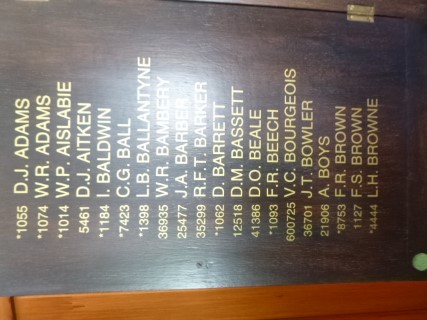 *1055 D.J. ADAMS
*1074 W.R. ADAMS
*1014 W.P. AISLABIE
5461 D.J. AITKEN
*1184 I. BALDWIN
*7423 C.G. BALL
*1398 L.B. BALLANTYNE
36935 W.R. BAMBERY
25477 J.A. BARBER
35299 R.F.T. BARKER
*1062 D. BARRETT
12518 D.M. BASSETT
41386 D.O. BEALE
*1093 F.R. BEECH
600725 V.C. BOURGEOIS
36701 J.T. BOWLER
21906 A. BOYS
*8753 F.R. BROWN
1127 F.S. BROWN
*4444 L.H. BROWNE